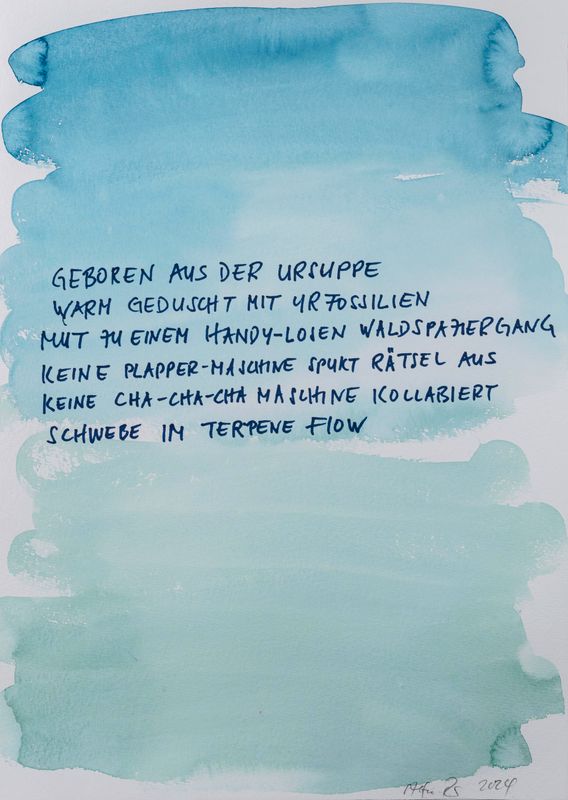 GEBOREN AUS DER URSUPPE
WARM GEDUSCHT MIT URFOSSILIEN
MUT ZU EINEM HANDY-LOSEN WALDSPAZIERGANG
KEINE PLAPPER-MASCHINE SPUKT RÄTSEL AUS
KEINE CHA-CHA-CHA MASCHINE KOLLABIERT
SCHWEBE IM TERPENE FLOW
2024